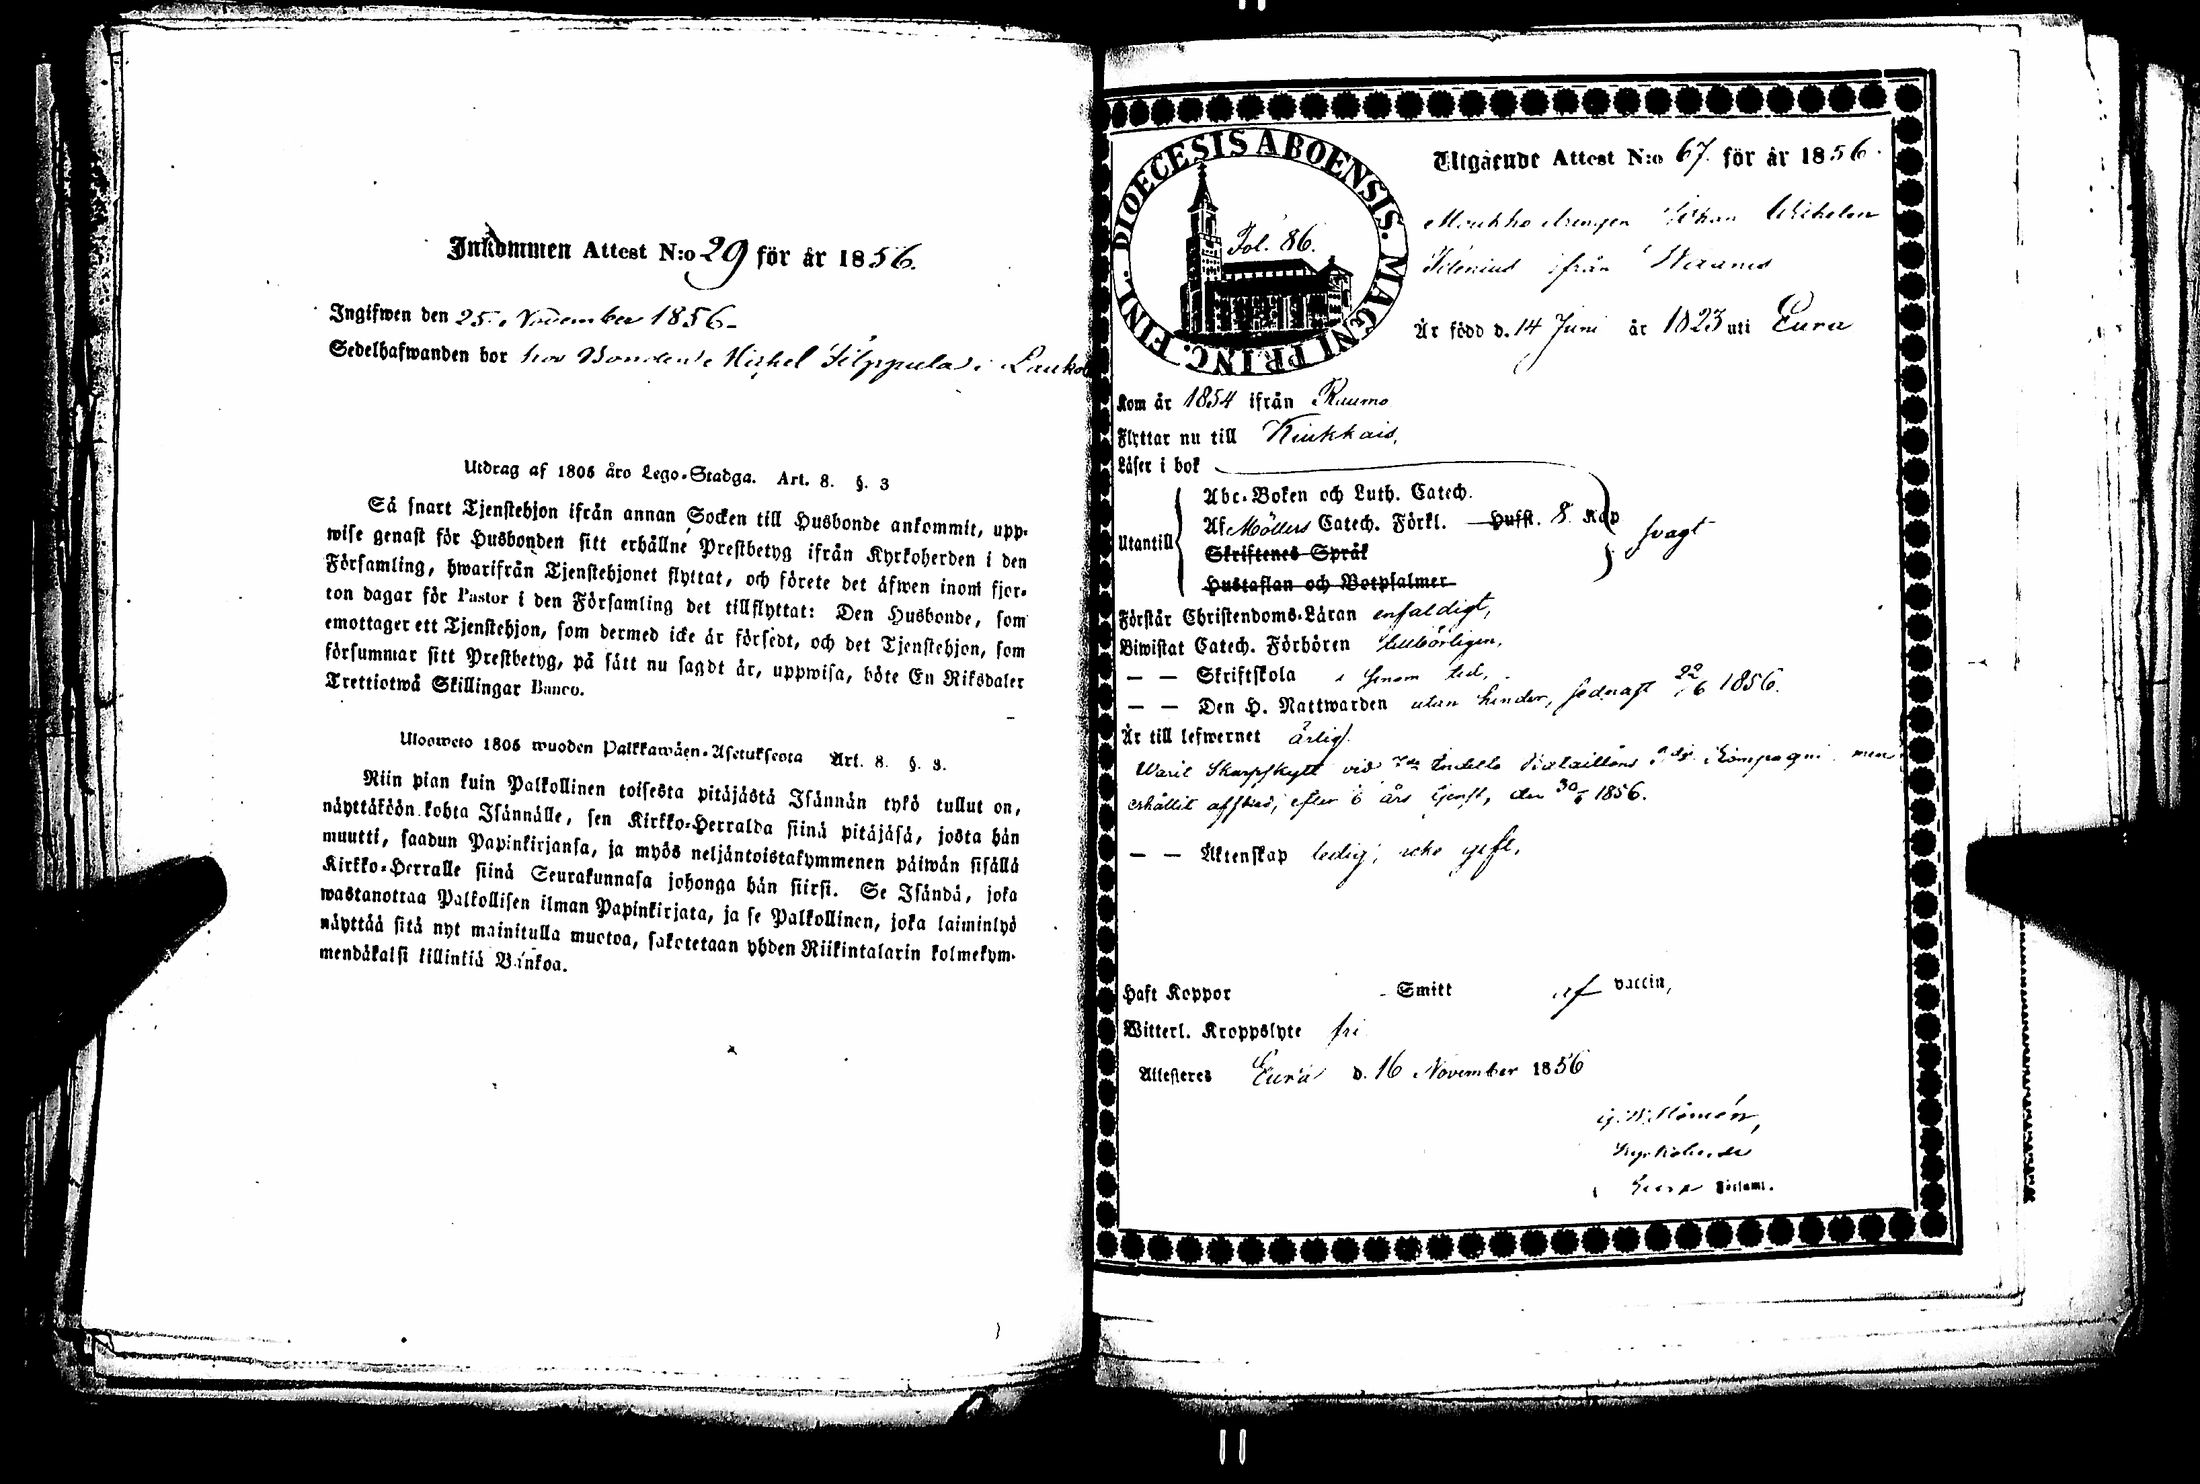 Inkommen Attest N:o 29 för år 1856.
Ingifwen den 25. November 1856.
Sedelhafwanden bor hos Bonden Michel Filppula i
Utdrag af 1805 års Lego-Stadga. Art. 8. §. 3
Så snart Tjenstehjon ifrån annan Socken till Husbonde ankommit, upp-
wise genast för Husbonden sitt erhållne Prestbetyg ifrån Kyrkoherden i den
Församling, hwarifrån Tjenstehjonet flyttat, och förete det äfwen inom fjor-
ton dagar för Pastor i den Församling det tillflyttat: Den Husbonde, som
emottager ett Tjenstehjon, som dermed icke är försedt, och det Tjenstehjon, som
försummar sitt Prestbetyg, på sätt nu sagdt är, uppwisa, böte En Riksdaler
Trettiotwå Skillingar Banco.
Ulosweto 1805 wuoden Palkkawäen-Asetuksesta Art. 8. §. 3.
Niin pian kuin Palkollinen toisesta pitäjästä Isännän tykö tullut on,
näyttäköön kohta Isännälle, sen Kirkko-Herralda siinä pitäjäsä, josta hän
muutti, saadun Papinkirjansa, ja myös neljäntoistakymmenen päiwän sisällä
Kirkko-Herralle siinä Seurakunnasa johonga hän siirsi. Se Isändä, joka
wastanottaa Palkollisen ilman Papinkirjata, ja se Palkollinen, joka laiminlyö
näyttää sitä nyt mainitulla muotoa, sakotetaan yhden Riikintalarin kolmekym-
mendäkaksi killinkiä Bankoa.
DIOECESIS ABOENSIS. MAGNI PRINC. FINL.
Fol. 86.
Utgående Attest N:o 67. för år 1856.
Johan Wilhelm
ifrån
Är född d. 14 Juni år 1823 uti Eura
Kom år 1854 ifrån Raumo
Flyttar nu till Kiukkais,
Läser i bok
Utantill
Abc-Boken och Luth. Catech.
Af Möllers Catech. Förkl. Hufst. 8. Kap
Skriftenes Språk
Hustaflan och Botpsalmer
svagt
Förstår Christendoms-Läran enfaldigt,
Biwistat Catech. Förhören tillbörligen,
— — Skriftskola i sinom tid,
— — Den H. Nattwarden utan hinder, sednast 22/6 1856.
Är till lefwernet ärlig.
Warit Skarpskytt vid Indelta Bataillons Kompagni men
erhållit afsked, efter 6 års tjenst, den 30/6 1856.
— — Äktenskap ledig, icke gift.
Haft Koppor Smitt af vaccin,
Witterl. Kroppslyte fri
Attesteras Eura d. 16 November 1856
Kyrkoherde
i Eura Församl.